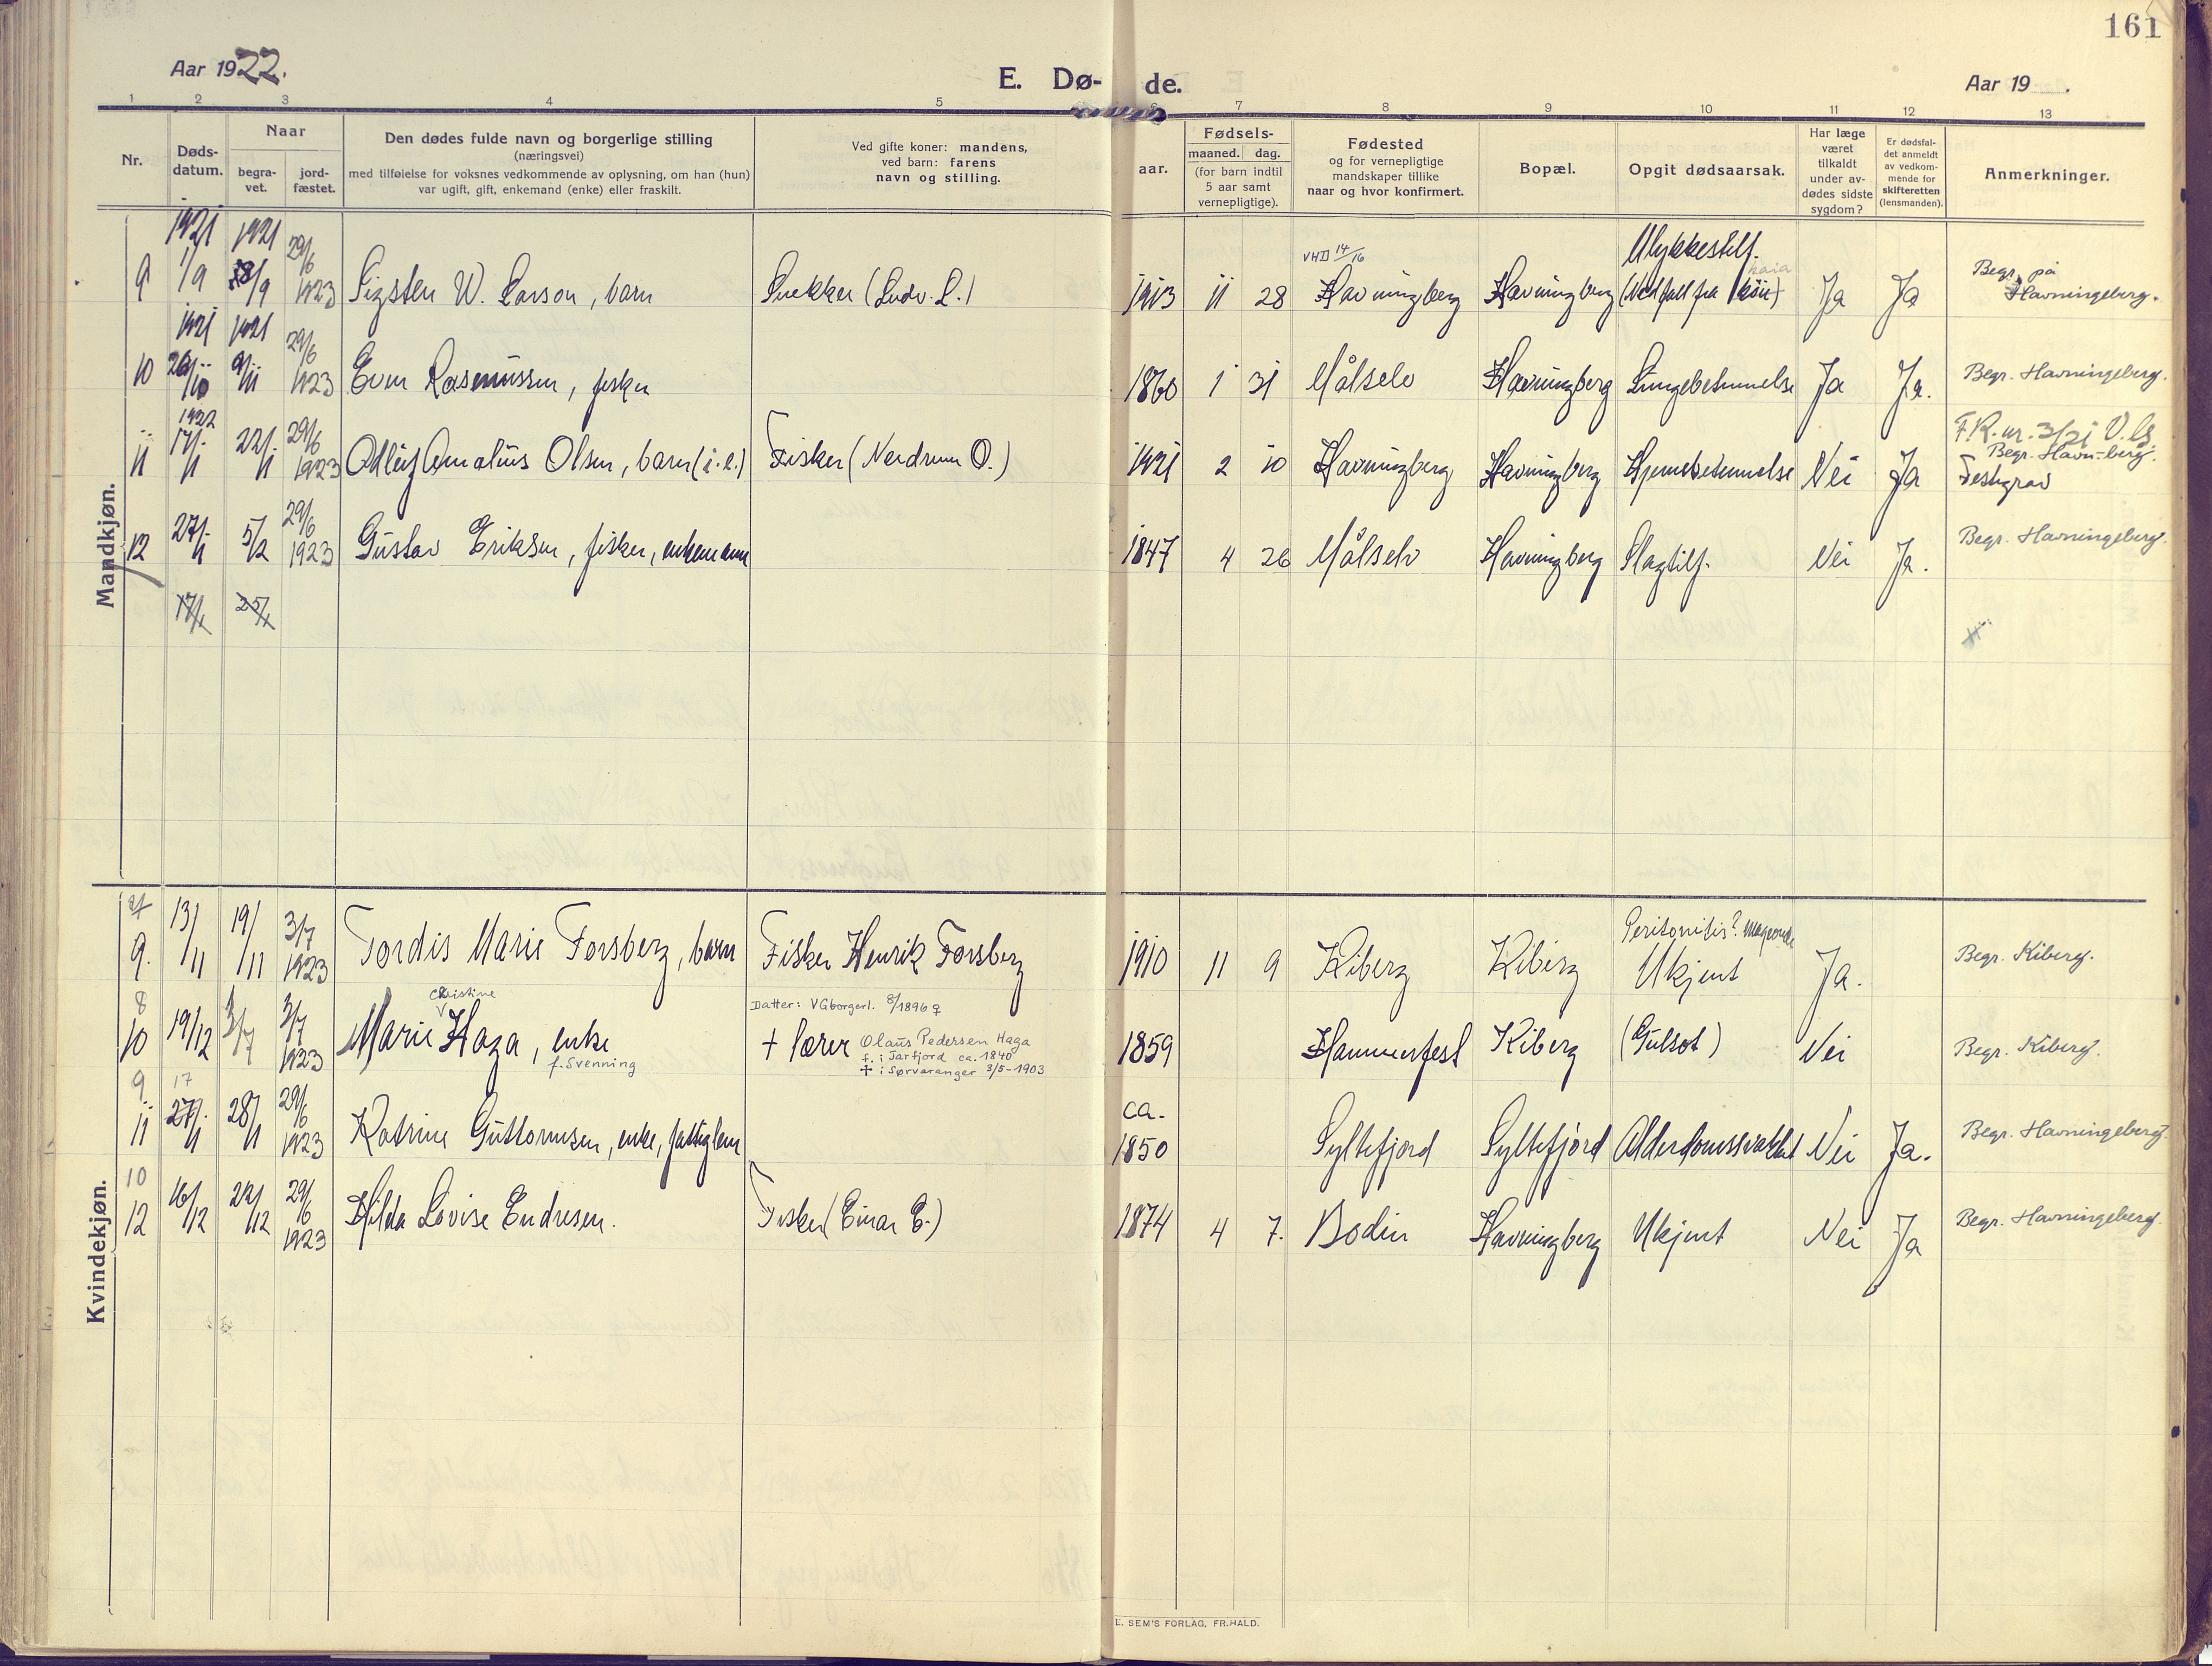 161
Aar 1922.
E. Dø- de.
Aar 19 .
1 2 3 4 5 6 7 8 9 10 11 12 13
Nr.
Døds-
datum.
Naar
begra-
vet.
jord-
fæstet.
Den dødes fulde navn og borgerlige stilling
(næringsvei)
med tilføielse for voksnes vedkommende av oplysning, om han (hun)
var ugift, gift, enkemand (enke) eller fraskilt.
Ved gifte koner: mandens,
ved barn: farens
navn og stilling.
aar.
Fødsels-
maaned. dag.
(for barn indtil
5 aar samt
vernepligtige).
Fødested
og for vernepligtige
mandskaper tillike
naar og hvor konfirmert.
Bopæl.
Opgit dødsaarsak.
Har læge
været
tilkaldt
under av-
dødes sidste
sygdom?
Er dødsfal-
det anmeldt
av vedkom-
mende for
skifteretten
(lensmanden).
Anmerkninger.
Mandkjøn.
1921 1921 29/6 VHD 14/16 Ulykkestilf. kaia Begr. på
9 1/9 8/9 1923 Sigsten W. Larson, barn Snekker (Ludv. L.) 1913 11 28 Havningberg Havningberg (Ned fall fra Ja Ja Havningeberg.
1921 1921 29/6
10 26/10 9/11 1923 Even Rasmussen, fisker 1860 1 31 Målselv Havningberg Lungebetennelse Ja Ja. Begr. Havningeberg.
1922 29/6 F.R. nr. 3/21 V.
11 17/1 22/1 1923 Odleif Amalius Olsen, barn (i.e.) Fisker (Nerdrum O.) 1921 2 10 Havningberg Havningberg Hjernebetennelse Nei Ja Begr. Havn-berg.
Festegrav
29/6
12 27/1 5/2 1923 Gustav Eriksen, fisker, enkemann 1847 4 26 Målselv Havningberg Slagtilf. Nei Ja. Begr. Havningeberg.
17/1 25/1
Kvindekjøn.
Peritonitis?
9. 13/11 19/11 3/7 1923 Tordis Marie Forsberg, barn Fisker Henrik Forsberg 1910 11 9 Kiberg Kiberg Ukjent Ja. Begr. Kiberg.
8 Christine Datter: VGborgerl. 8/1896 ♀
10 19/12 3/7 3/7 1923 Marie Haga, enke + lærer Olaus Pedersen Haga 1859 Hammerfest Kiberg (Gulsot) Nei Begr. Kiberg.
f. Svenning f. i Jarfjord ca. 1840
+ i Sørvaranger 3/5-1903
9 17 29/6 ca.
11 27/1 28/1 1923 Katrine Guttormsen, enke, fattiglem 1850 Syltefjord Syltefjord Alderdomssvakhet Nei Ja. Begr. Havningeberg.
10 29/6
12 16/12 22/12 1923 Hilda Lovise Endresen. Fisker (Einar E.) 1874 4 7. Bodin Havningberg Ukjent Nei Ja Begr. Havningeberg.
E. SEM'S FORLAG, FR.HALD.